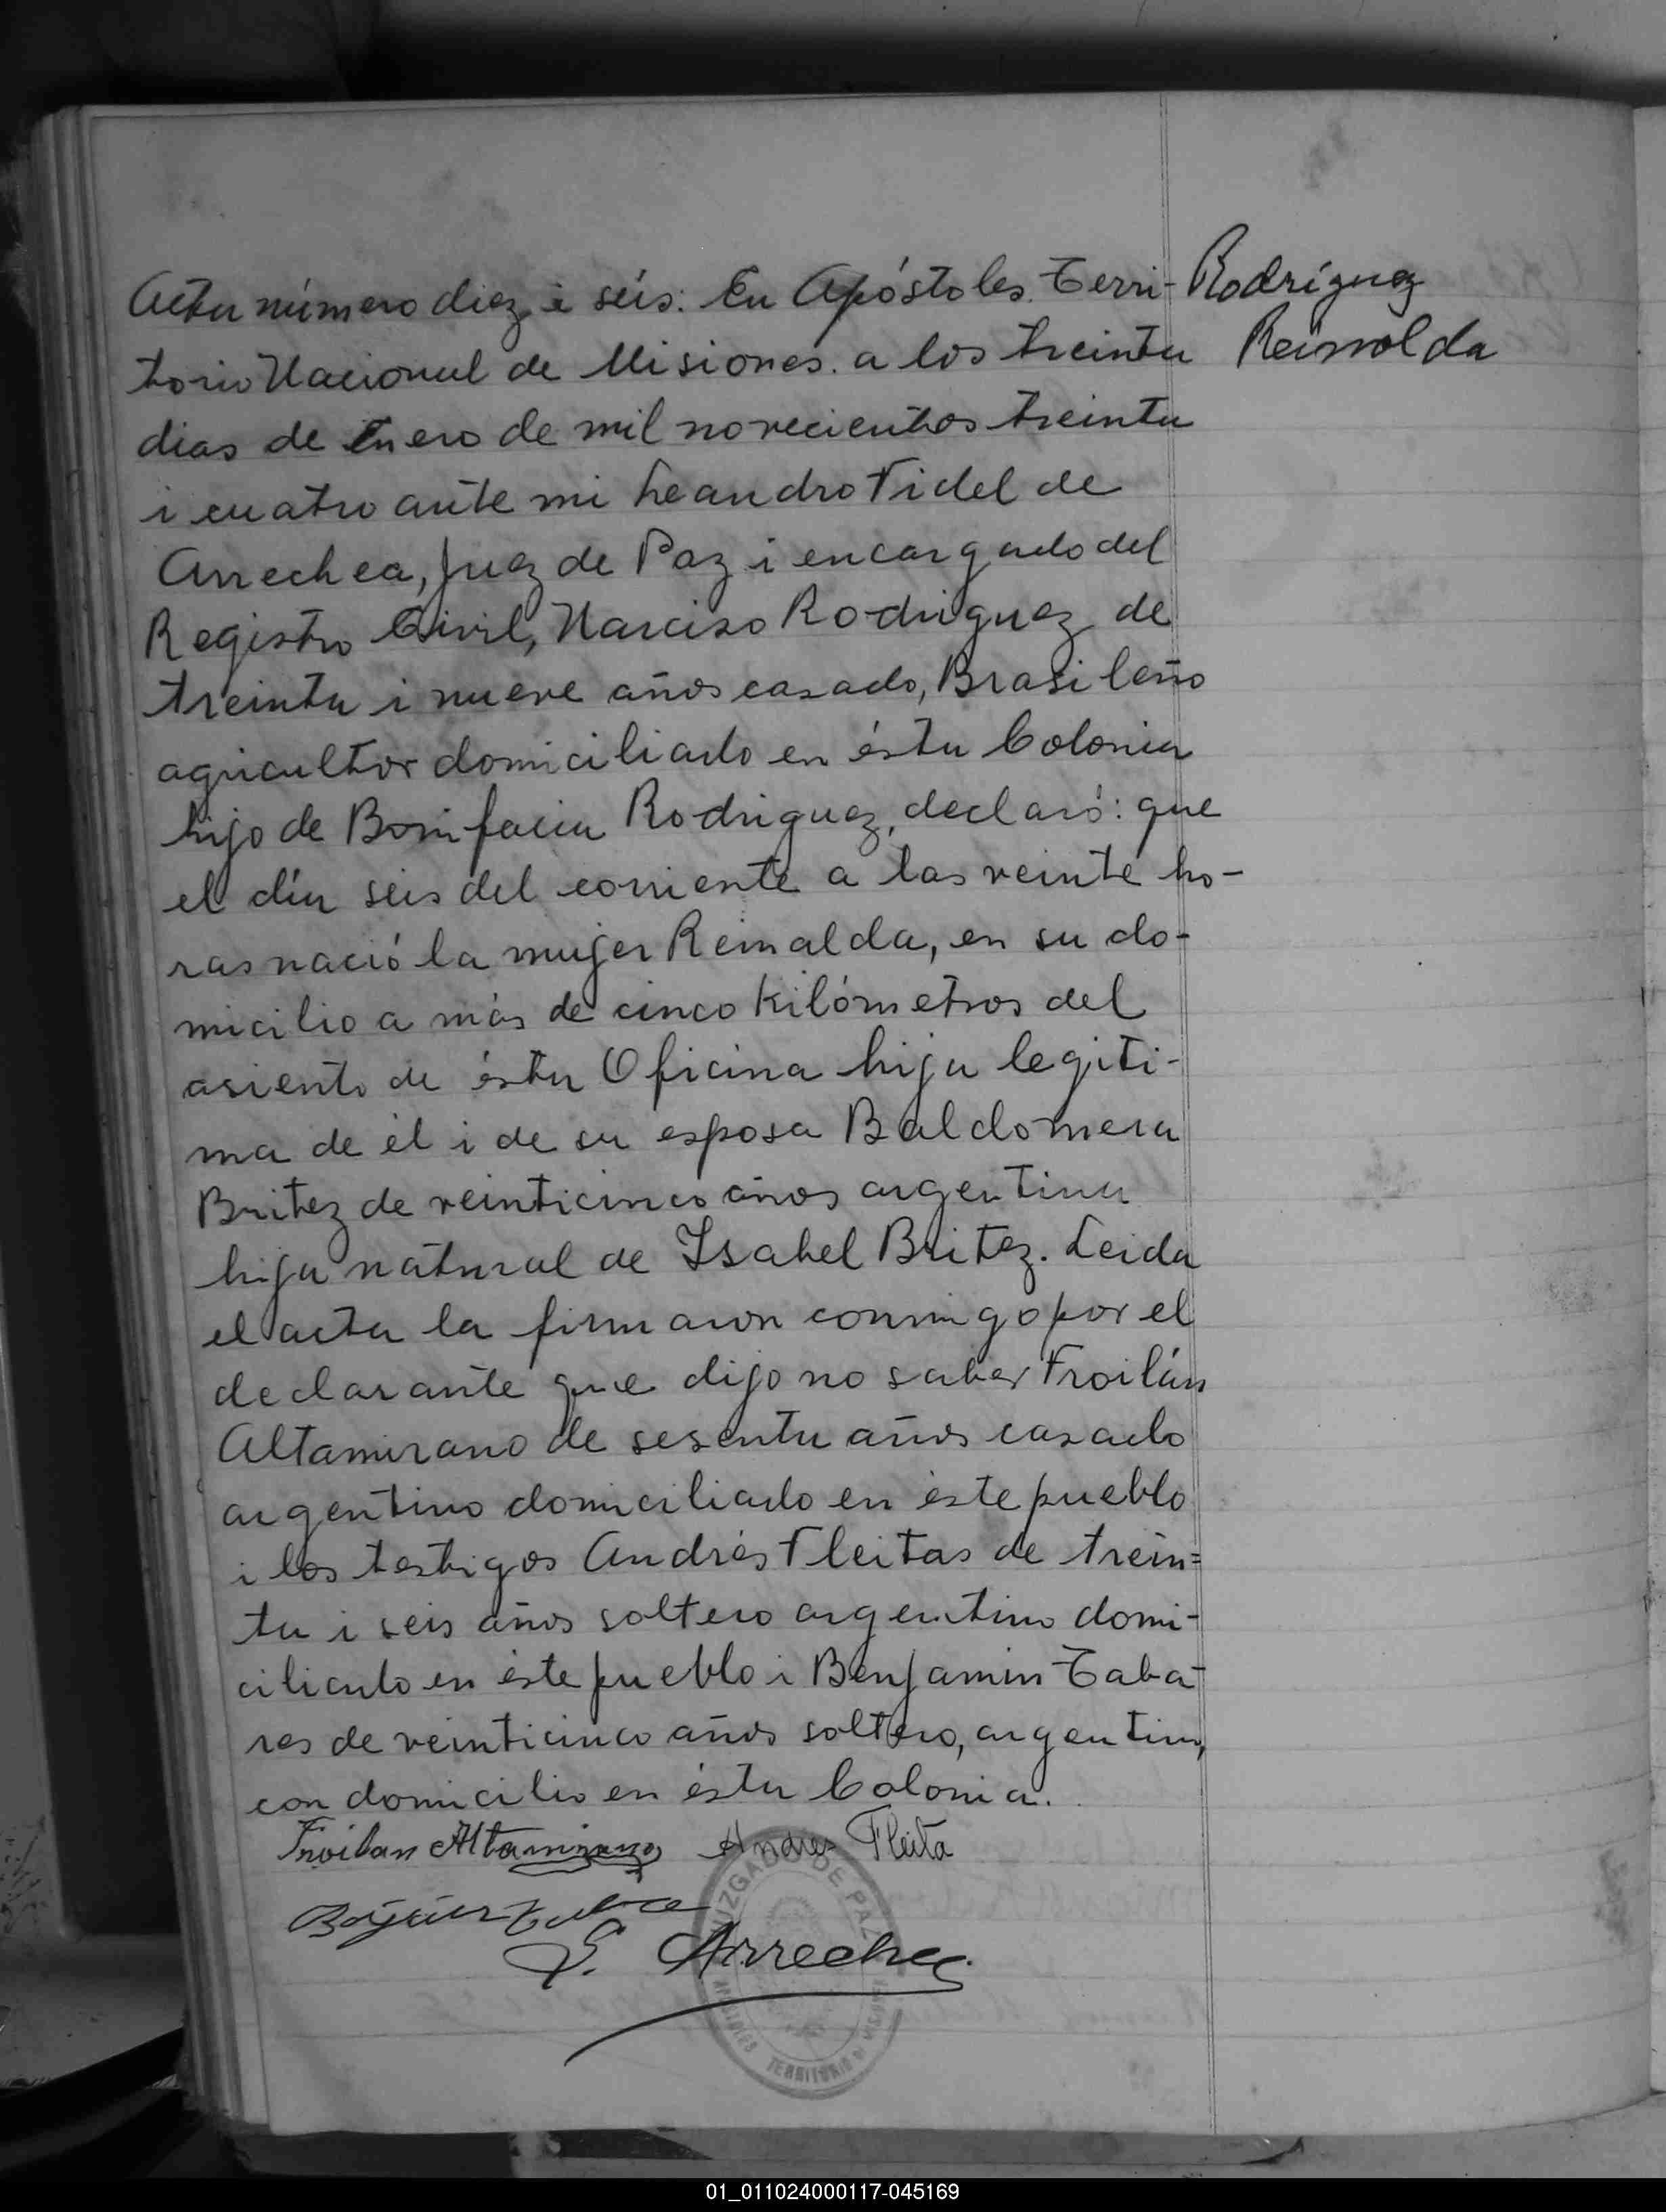 Acta número diez i séis: En Apóstoles. Terri-
torio Nacional de Misiones. a los treinta
dias de Enero de mil novecientos treinta
i cuatro ante mi Leandro Fidel de
Arrechea, Juez de Paz i encargado del
Registro Civil, Narciso Rodriguez de
treinta i nueve años casado, Brasileño
agricultor domiciliado en ésta Colonia
hijo de Bonifacia Rodriguez, declaró: que
el día seis del corriente a las veinte ho-
ras nació la mujer Reinalda, en su do-
micilio a más de cinco Kilómetros del
asiento de ésta Oficina hija legiti-
ma de él i de su esposa Baldomera
Britez de veinticinco años argentina
hija natural de Isabel Britez. Leida
el acta la firmaron conmigo por el
declarante que dijo no saber Froilán
Altamirano de sesenta años casado
argentino domiciliado en éste pueblo
i los testigos Andrés Fleitas de trein=
ta i seis años soltero argentino domi-
ciliado en éste pueblo i Benjamin Taba-
res de veinticinco años soltero, argentino,
con domicilio en ésta Colonia.
Rodríguez
Reinolda
Froilan Altamirano Andres Fleita
Arrechea
JUZGADO DE PAZ
APOSTOLES TERRITORIO DE MISIONES
01_011024000117-045169